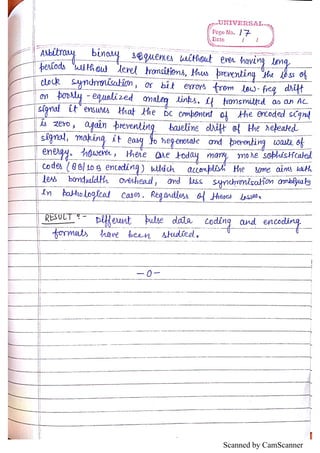 UNIVERSAL
Page No. 17
Date / /
Arbitrary binary sequences without ever having long
periods without level transitions, thus preventing the loss of
clock synchronisation, or bit errors from low-freq drift
on poorly-equalized analog links. If transmitted as an AC
signal it ensures that the DC component of the encoded signal
is zero, again preventing baseline drift of the repeated
signal, making it easy to regenerate and preventing waste of
energy. however, there are today many more sophisticated
codes (8B/10B encoding) which accomplish the same aims with
less bandwidth overhead, and less synchronisation ambiguity
in pathological cases. Regardless of these losses.
RESULT :- Different pulse data coding and encoding
formats have been studied.
-0-
Scanned by CamScanner